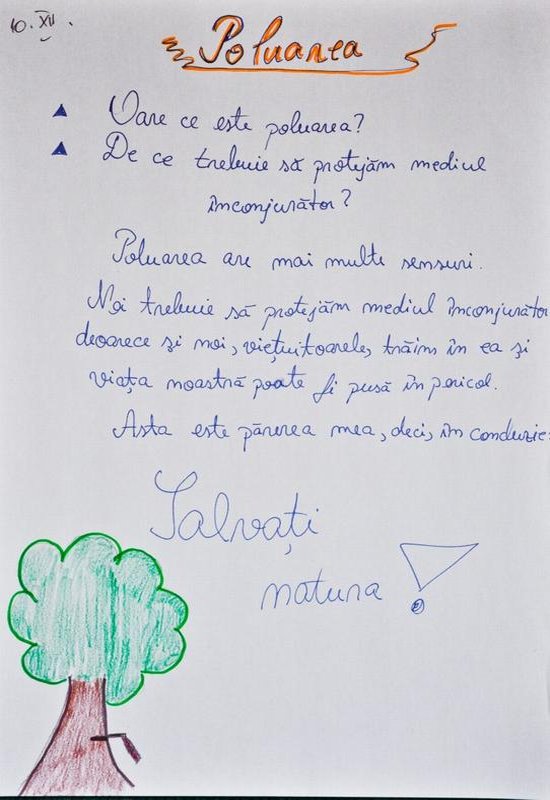 10. XII.
Poluarea
Oare ce este poluarea?
De ce trebuie să protejăm mediul
înconjurător?
Poluarea are mai multe sensuri.
Noi trebuie să protejăm mediul înconjurător
deoarece și noi, viețuitoarele, trăim în ea și
viața noastră poate fi pusă în pericol.
Asta este părerea mea, deci, în concluzie:
Salvați
natura!